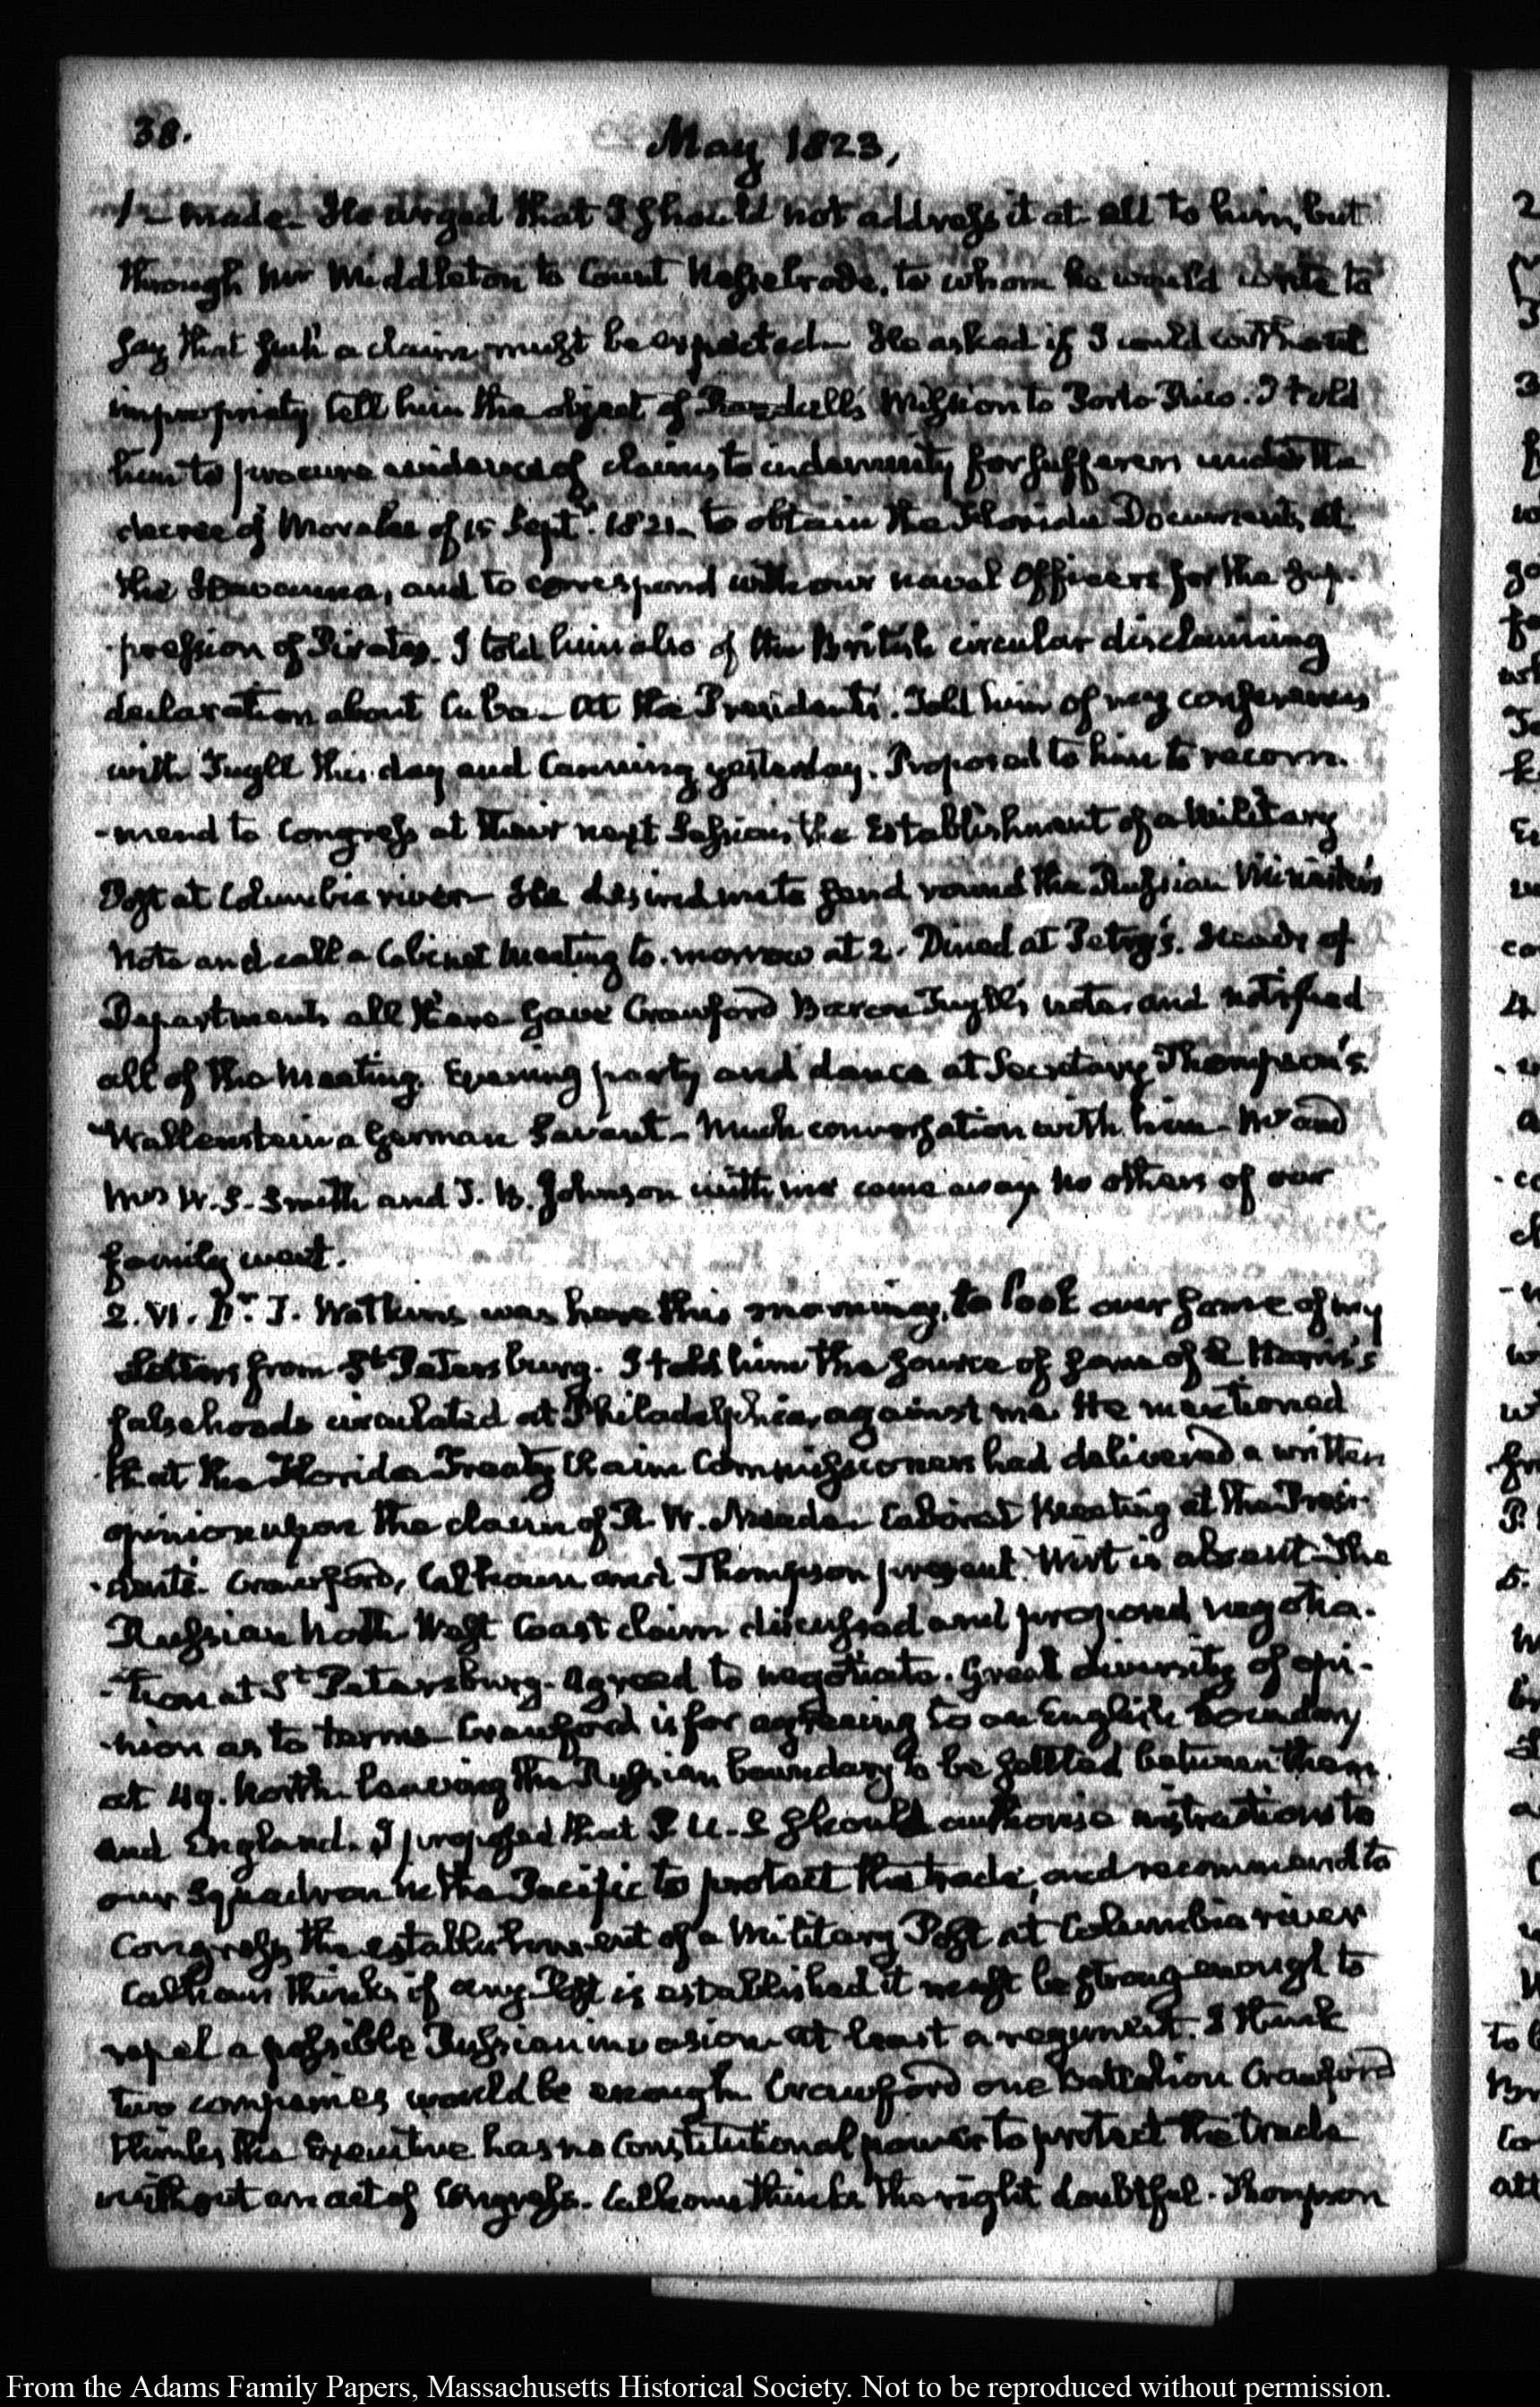 38.
May 1823,
1 - made. He urged that I should not address it at all to him, but
through Mr Middleton to Count Nesselrode, to whom he would write to
say that such a claim must be expected. He asked if I could without
impropriety tell him the object of Randall's Mission to Porto Rico. I told
him to procure evidence of claims to indemnity for sufferers under the
decree of Morales of 15 Septr. 1821. to obtain the Florida Documents at
the Havanna, and to correspond with our naval Officers for the sup-
-pression of Pirates. I told him also of the British circular disclaiming
declaration about Cuba. At the President's. Told him of my conferences
with Tuyll this day and Canning yesterday. Proposed to him to recom-
-mend to Congress at their next Session, the Establishment of a Military
Post at Columbia river. He desired me to send round the Russian Minister's
Note and call a Cabinet Meeting to-morrow at 2. Dined at Petry's. Heads of
Departments all there. Gave Crawford Baron Tuyll's note, and notified
all of the Meeting. Evening party and dance at Secretary Thompson's.
Wallenstein a German Savant. Much conversation with him. Mr and
Mrs W. S. Smith and J. B. Johnson with me came away no others of our
family went.
2. VI. Dr. T. Watkins was here this morning, to look over some of my
Letters from St. Petersburg. I told him the source of some of L Harris's
falsehoods circulated at Philadelphia, against me. He mentioned
that the Florida Treaty Claim Commissioners had delivered a written
opinion upon the claim of R. W. Meade. Cabinet Meeting at the Presi-
-dent's. Crawford, Calhoun and Thompson present. Wirt is absent. The
Russian North West Coast claim discussed and proposed negotia-
-tion at St. Petersburg. Agreed to negotiate. Great diversity of opi-
-nion as to terms. Crawford is for agreeing to an English boundary
at 49. North leaving the Russian boundary to be settled between them
and England. I proposed that P. U.S. should authorise instructions to
our Squadron in the Pacific to protect the trade, and recommend to
Congress the establishment of a Military Post at Columbia river
Calhoun thinks if any Post is established it must be strong enough to
repel a possible Russian invasion at least a regiment. I think
two companies would be enough. Crawford one Battalion Crawford
thinks the Executive has no Constitutional power to protect the trade
without an act of Congress. Calhoun thinks the right doubtful. Thompson
From the Adams Family Papers, Massachusetts Historical Society. Not to be reproduced without permission.